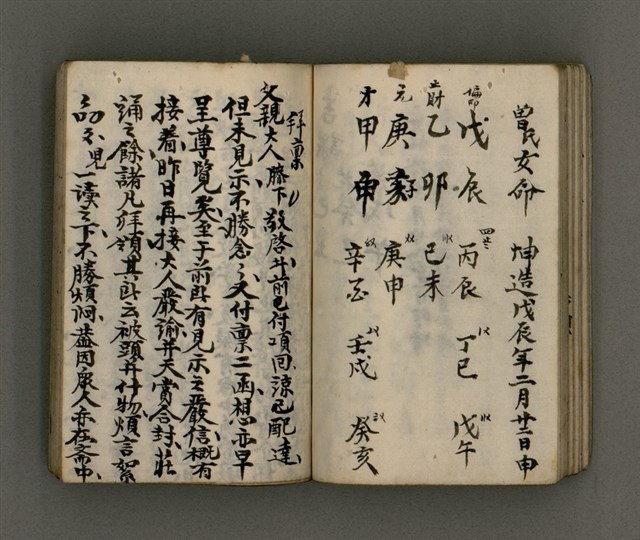 曾氏女命　坤造戊辰年二月廿二日申
偏印　戊辰　丙辰　丁巳　戊午
正財　乙卯　己未
元　庚子　庚申
才　甲申　辛酉　壬戌　癸亥
拜稟
父親大人膝下敬啓廾前已付項回諒已配達
但未見示不勝念之又付稟二函想亦早
呈尊覽矣至于前所有見示之嚴信概有
接着昨日再接大人嚴諭并天賞合封莊
誦之餘諸凡拜領其所云被頭并什物煩言絮
一讀之下不勝煩悶蓋因家人亦在斋中